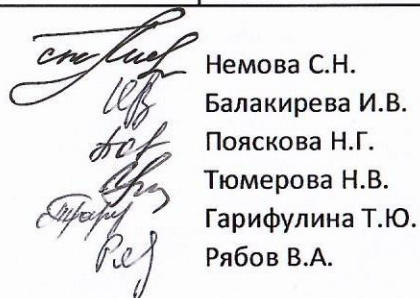 Немова С.Н.
Балакирева И.В.
Пояскова Н.Г.
Тюмерова Н.В.
Гарифулина Т.Ю.
Рябов В.А.